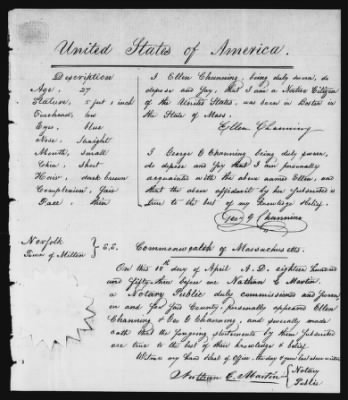 United States of America.
Description
Age, 27
Stature, 5 feet 1 inch
Forehead, low
Eyes, blue
Nose, straight
Mouth, small
Chin, short
Hair, dark brown
Complexion, fair
Face, thin
I Ellen Channing, being duly sworn, do
depose and say, that I am a Native Citizen
of the United States, was born in Boston in
the State of Mass.
Ellen Channing
I George G Channing being duly sworn,
do depose and say that I am personally
acquainted with the above named Ellen, and
that the above affidavit by her subscribed is
true to the best of my knowledge & belief.
Geo. G. Channing
Norfolk
Town of Milton } S.S. Commonwealth of Massachusetts.
On this day of April A.D. eighteen hundred
and fifty three before me Nathan C. Martin,
a Notary Public duly commissioned and sworn
in and for said County, personally appeared Ellen
Channing & Geo G Channing, and severally made
oath that the foregoing statements by them subscribed
are true to the best of their knowledge & belief.
Witness my hand & seal of Office, the day & year last above written
Nathan C. Martin { Notary
Public